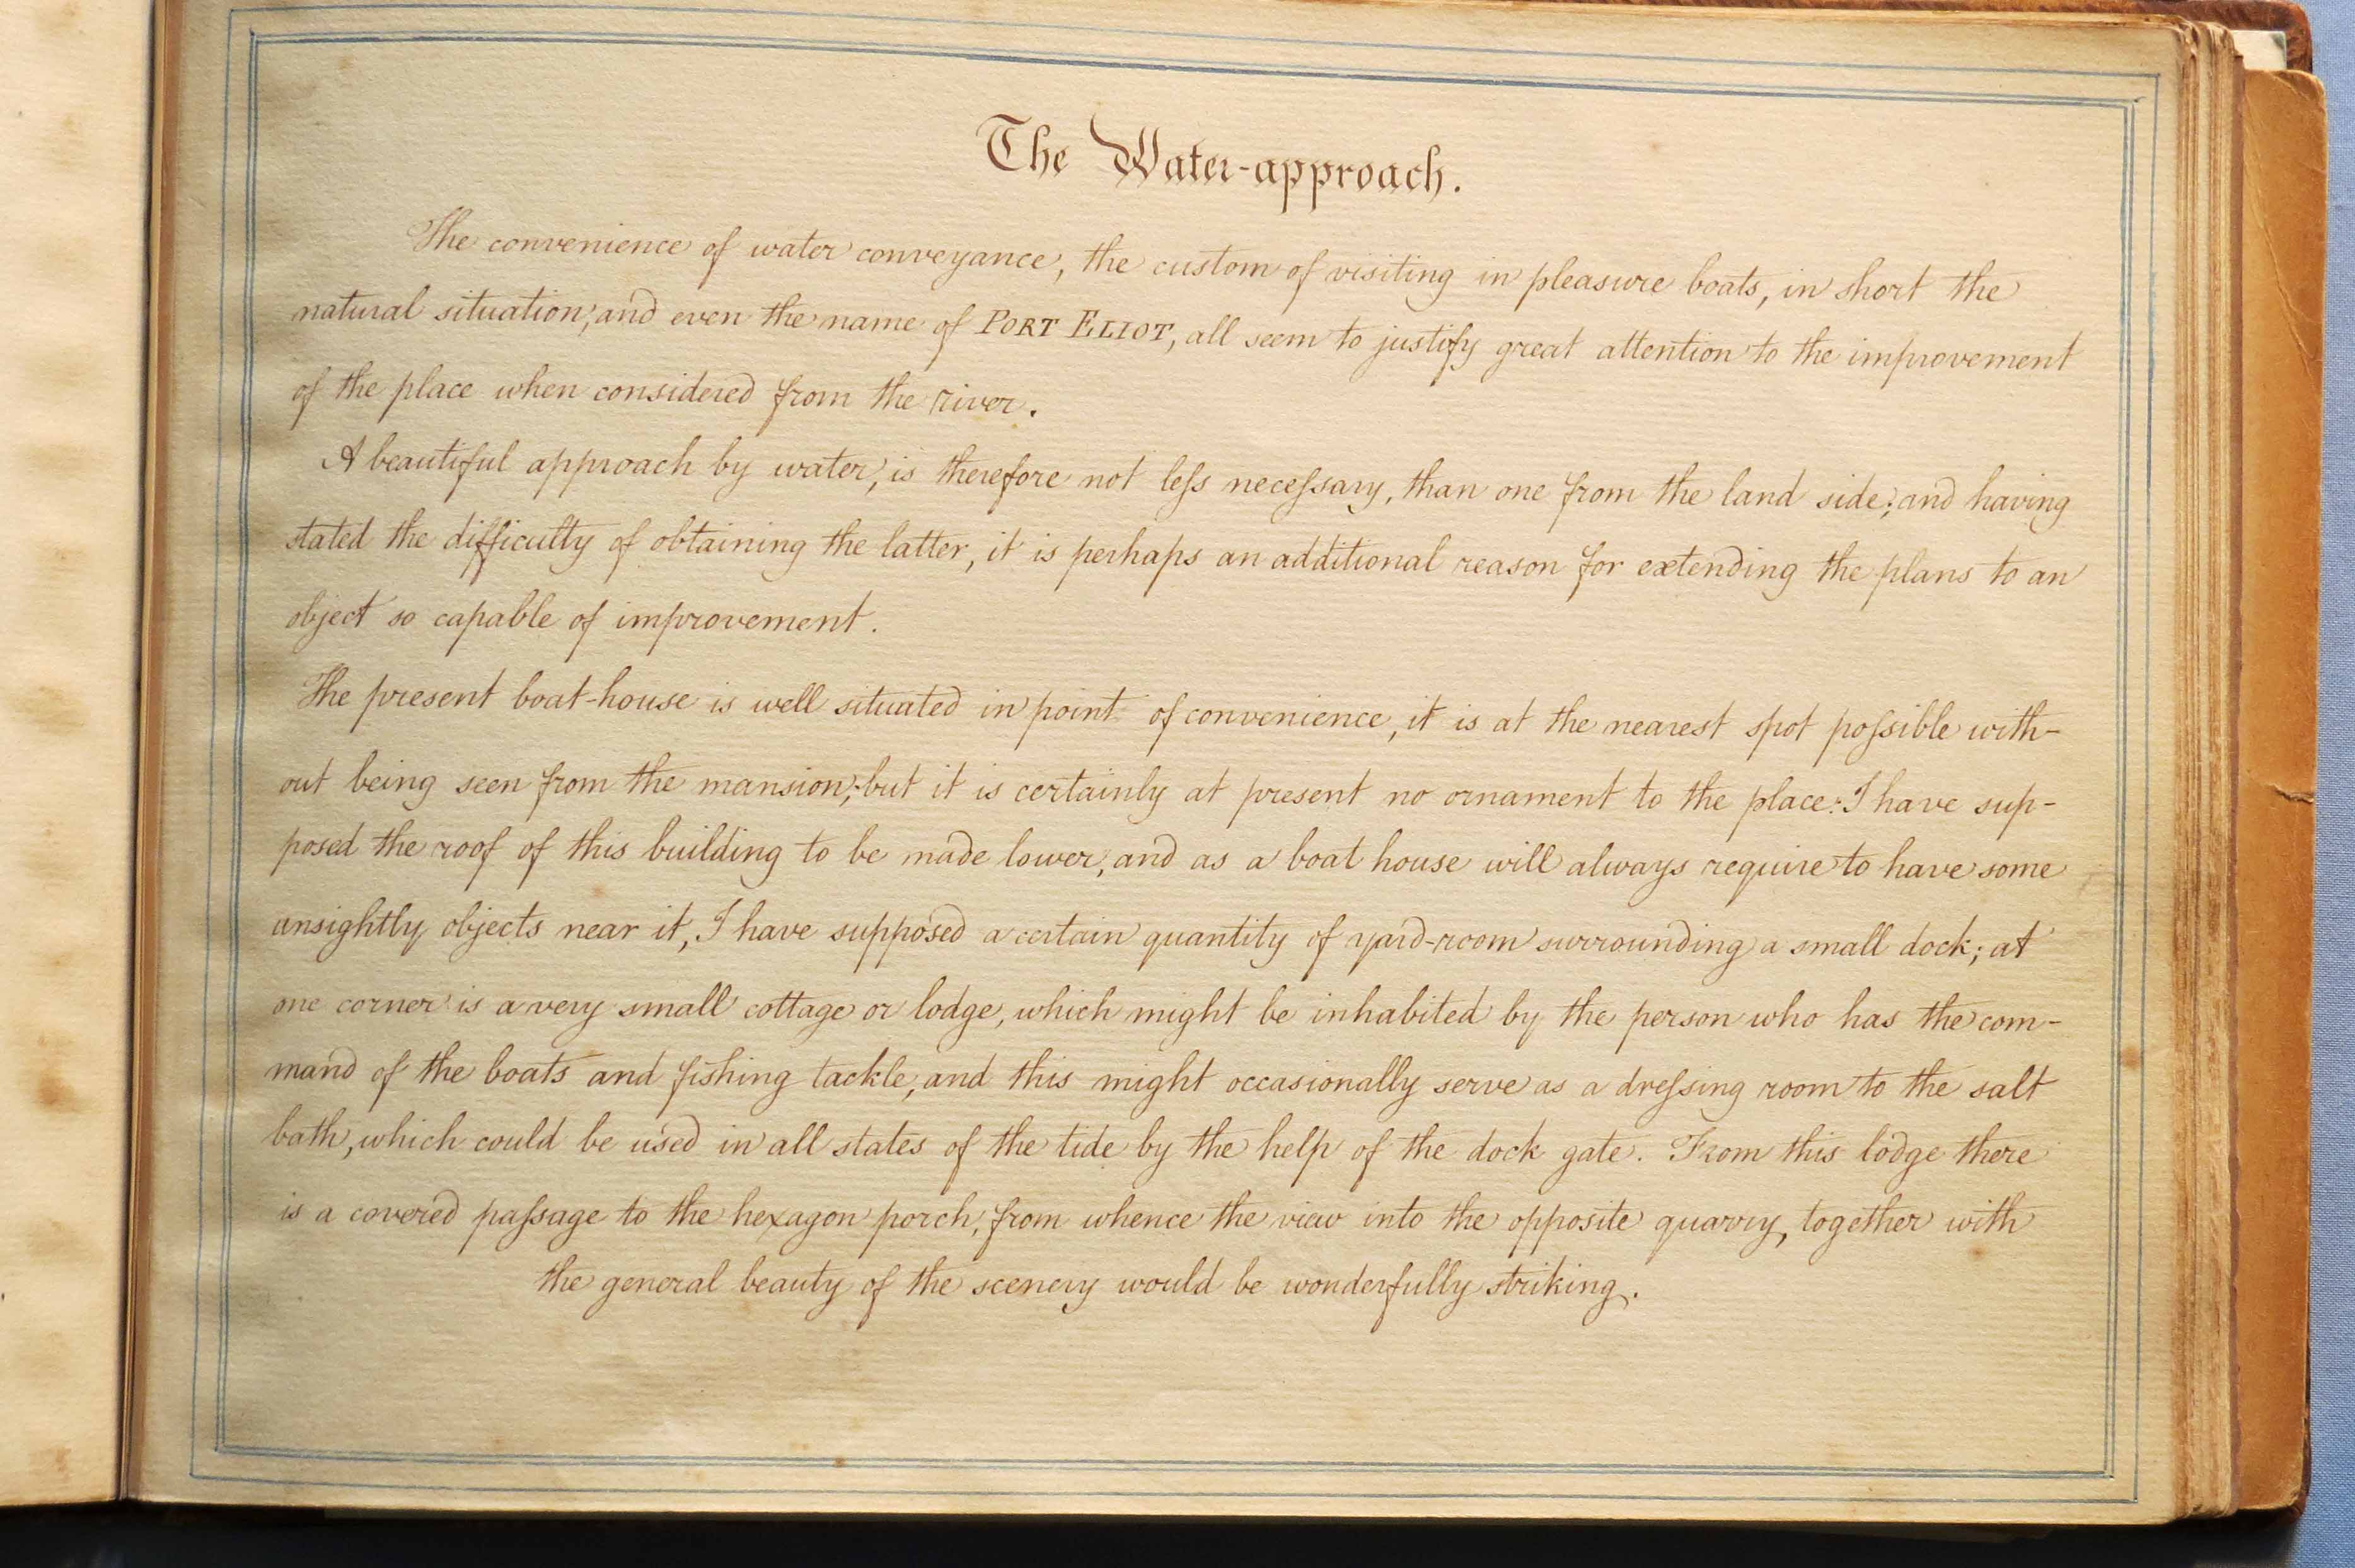 The Water-approach.
The convenience of water conveyance, the custom of visiting in pleasure boats, in short the
natural situation, and even the name of PORT ELIOT, all seem to justify great attention to the improvement
of the place when considered from the river.
A beautiful approach by water, is therefore not leſs neceſsary, than one from the land side; and having
stated the difficulty of obtaining the latter, it is perhaps an additional reason for extending the plans to an
object so capable of improvement.
The present boat-house is well situated in point of convenience, it is at the nearest spot poſsible with-
out being seen from the mansion; but it is certainly at present no ornament to the place: I have sup-
posed the roof of this building to be made lower, and as a boat house will always require to have some
unsightly objects near it, I have supposed a certain quantity of yard-room surrounding a small dock; at
one corner is a very small cottage or lodge, which might be inhabited by the person who has the com-
mand of the boats and fishing tackle, and this might occasionally serve as a dreſsing room to the salt
bath, which could be used in all states of the tide by the help of the dock gate. From this lodge there
is a covered paſsage to the hexagon porch, from whence the view into the opposite quarry, together with
the general beauty of the scenery would be wonderfully striking.